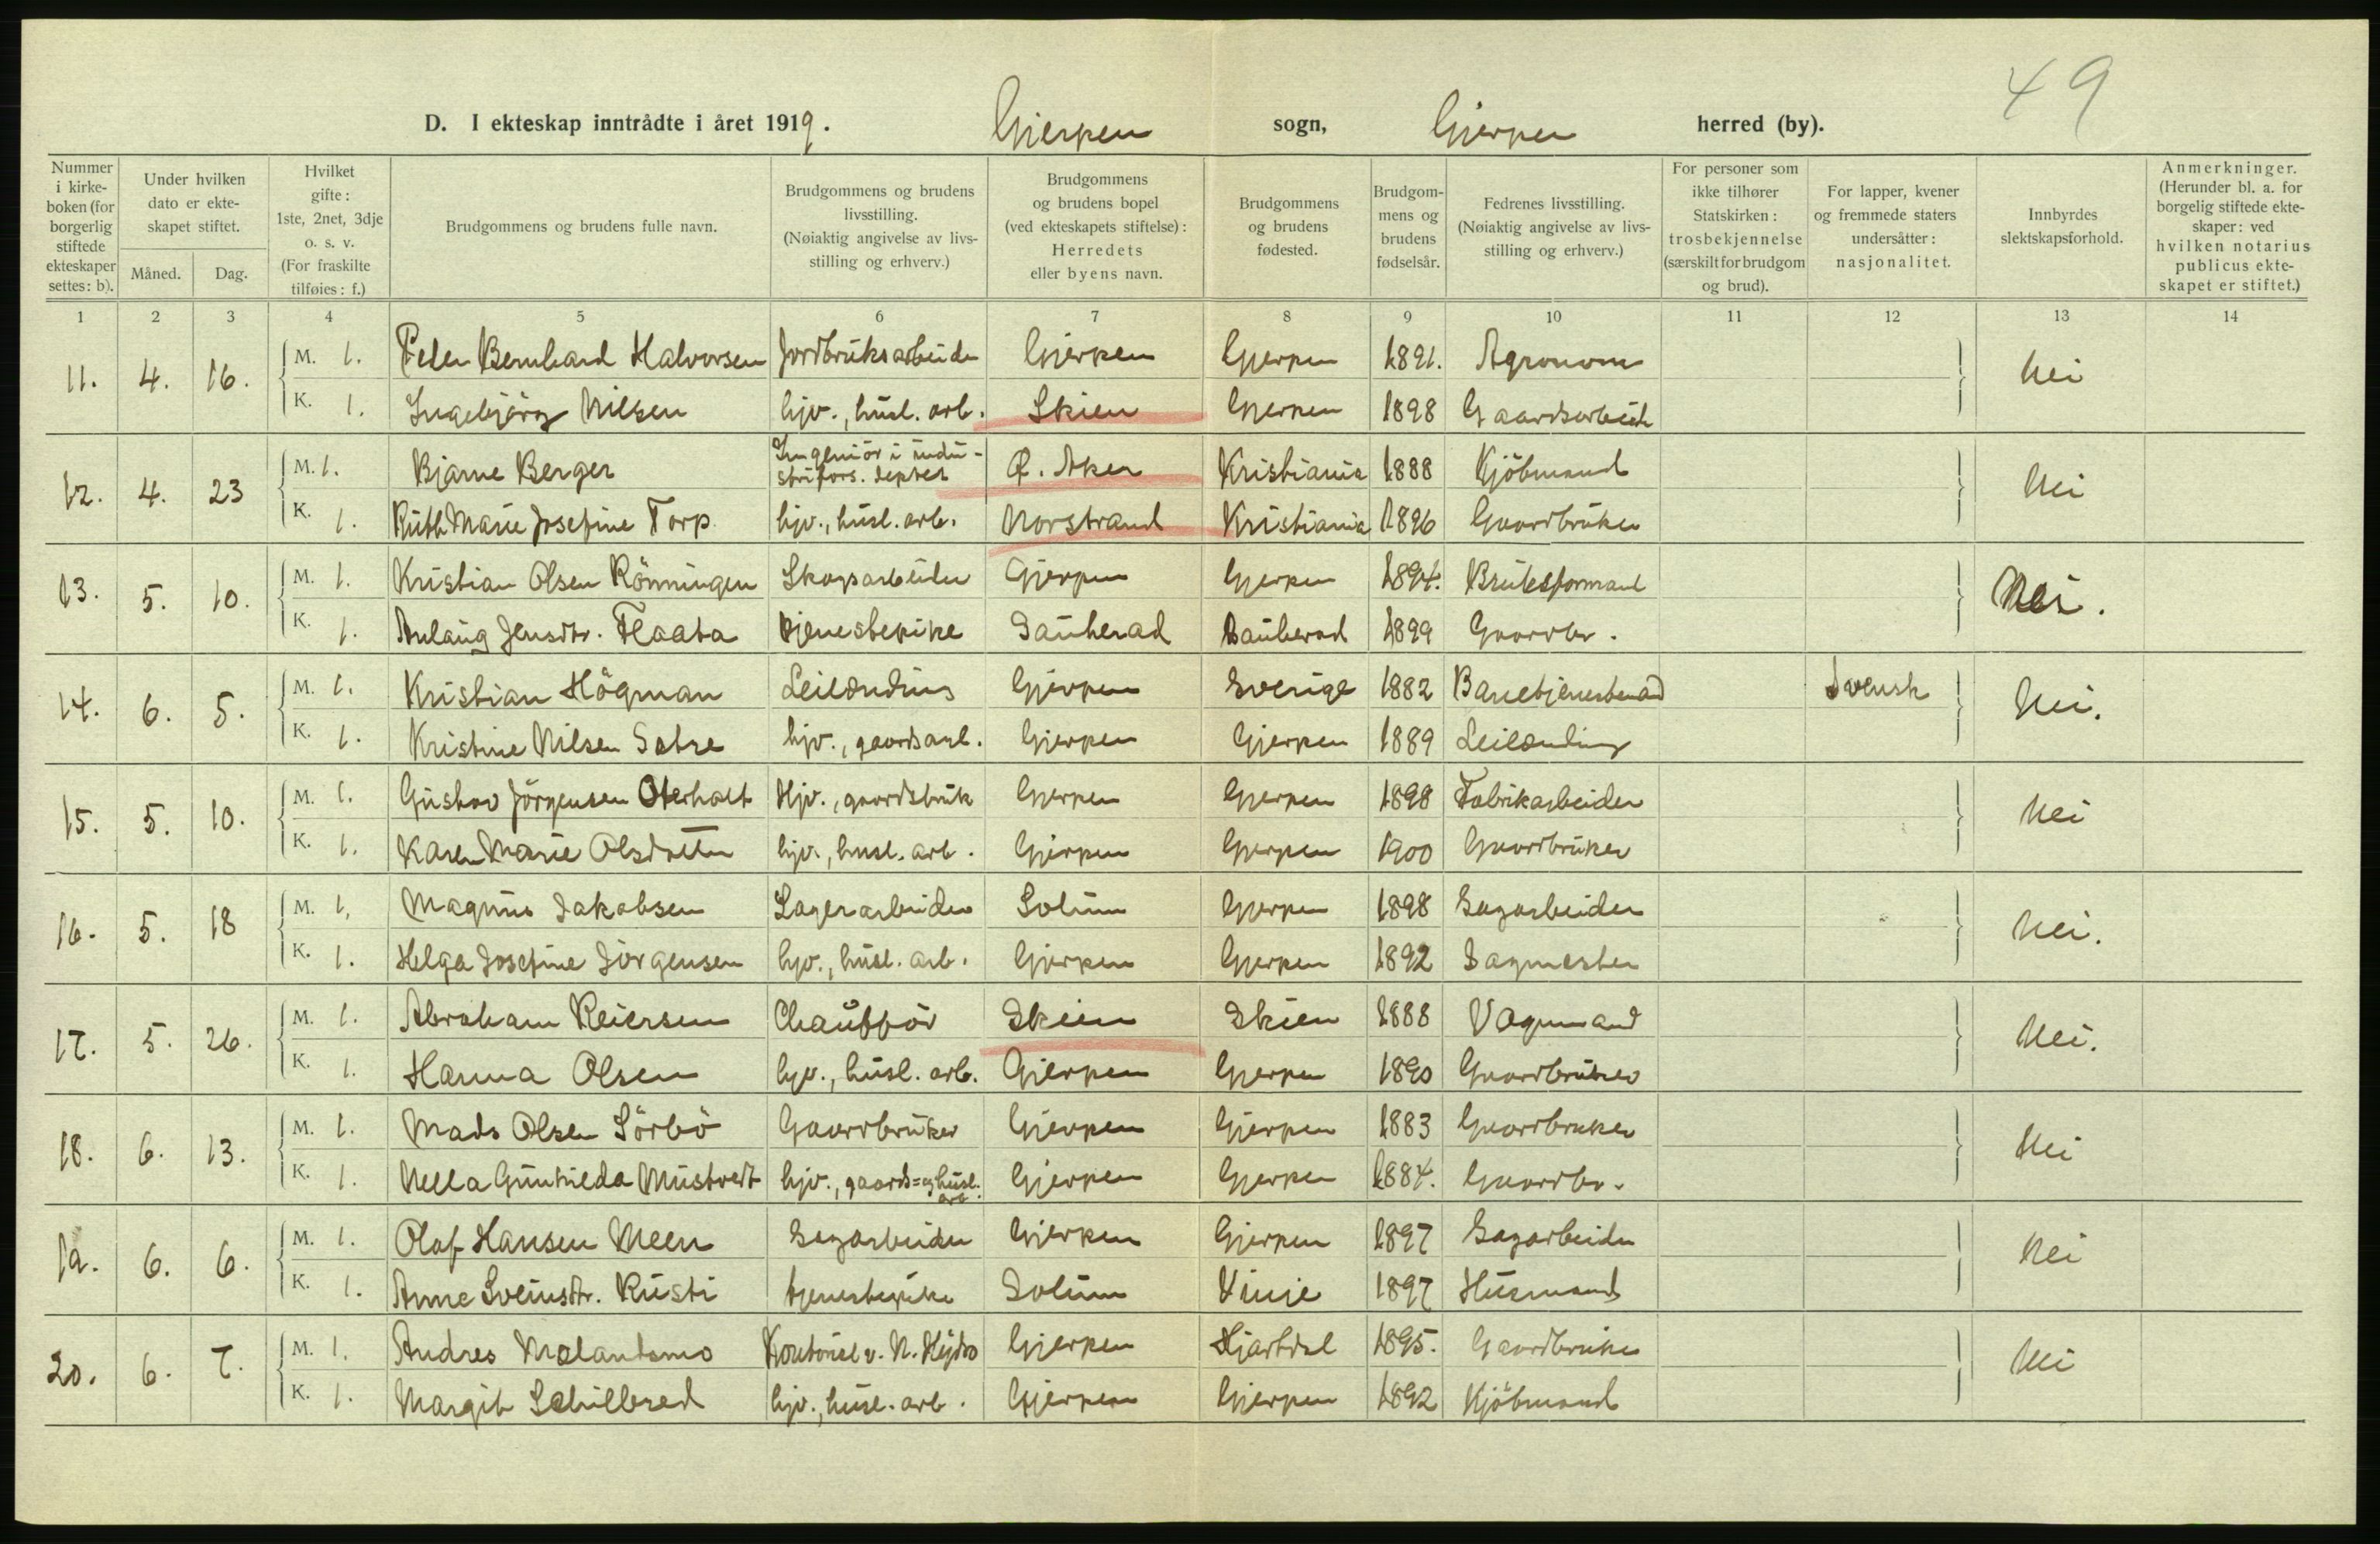 49
D. I ekteskap inntrådte i året 1919. Gjerpen sogn, Gjerpen herred (by).
Nummer i kirke-boken (for borgerlig stiftede ekteskaper settes: b).
Under hvilken dato er ekte-skapet stiftet.
Måned. Dag.
Hvilket gifte: 1ste, 2net, 3dje o. s. v. (For fraskilte tilføies: f.)
Brudgommens og brudens fulle navn.
Brudgommens og brudens livsstilling. (Nøiaktig angivelse av livs-stilling og erhverv.)
Brudgommens og brudens bopel (ved ekteskapets stiftelse): Herredets eller byens navn.
Brudgommens og brudens fødested.
Brudgom-mens og brudens fødselsår.
Fedrenes livsstilling. (Nøiaktig angivelse av livs-stilling og erhverv.)
For personer som ikke tilhører Statskirken: trosbekjennelse (særskilt for brudgom og brud).
For lapper, kvener og fremmede staters undersåtter: nasjonalitet.
Innbyrdes slektskapsforhold.
Anmerkninger. (Herunder bl. a. for borgelig stiftede ekte-skaper: ved hvilken notarius publicus ekte-skapet er stiftet.)
1 2 3 4 5 6 7 8 9 10 11 12 13 14
11. 4. 16. M. 1. Peder Bernhard Halvorsen Jordbruksarbeider Gjerpen Gjerpen 1891. Agronom Nei
K. 1. Ingebjörg Nilsen hjv., husl. arb. Skien Gjerpen 1898 Gaardsarbeider
12. 4. 23 M. 1. Bjarne Berger Ingeniör i indu-strifors. deptet Ø. Aker Kristiania 1888 Kjöbmand Nei
K. 1. Ruth Marie Josefine Torp hjv., husl. arb. Norstrand Kristiania 1896 Gaardbruker
13. 5. 10. M. 1. Kristian Olsen Rönningen Skogsarbeider Gjerpen Gjerpen 1894. Bruksformand Nei.
K. 1. Aslaug Jensdtr. Flaata tjenestepike Sauherad Sauherad 1899 Gaardbr.
14. 6. 5. M. 1. Kristian Högman Leilænding Gjerpen Sverige 1882 Banetjenestemand Svensk Nei.
K. 1. Kristine Nilsen Satre hjv., gaardsarb. Gjerpen Gjerpen 1889 Leilænding
15. 5. 10. M. 1. Gustav Jörgensen Oterholt Hjv., gaardsbruk Gjerpen Gjerpen 1898 Fabrikarbeider Nei
K. 1. Karen Marie Olsdatter hjv., husl. arb. Gjerpen Gjerpen 1900 Gaardbruker
16. 5. 18 M. 1, Magnus Jakobsen Lagerarbeider Solum Gjerpen 1898 Sagarbeider Nei.
K. 1. Helga Josefine Jörgensen hjv., husl. arb. Gjerpen Gjerpen 1892 Sagmester
17. 5. 26. M. 1. Abraham Reiersen Chaufför Skien Skien 1888 Vognmand Nei.
K. 1. Hanna Olsen hjv., husl. arb. Gjerpen Gjerpen 1890 Gaardbruker
18. 6. 13. M. 1. Mads Olsen Sörbö Gaardbruker Gjerpen Gjerpen 1883 Gaardbruker Nei
K. 1. Nella Gunhilda Mustvedt hjv., gaards= og husl. arb. Gjerpen Gjerpen 1884. Gaardbr.
19. 6. 6. M. 1. Olaf Hansen Meen Sagarbeider Gjerpen Gjerpen 1897 Sagarbeider Nei
K. 1. Anne Sveinsdtr. Rusti tjenestepike Solum Vinje 1897 Husmand
20. 6. 7. M. 1. Andres Molandsmo Kontorist v. N. Hydro Gjerpen Hjartdal 1895. Gaardbruker Nei
K. 1. Margit Schilbred hjv., husl. arb. Gjerpen Gjerpen 1892 Kjöbmand